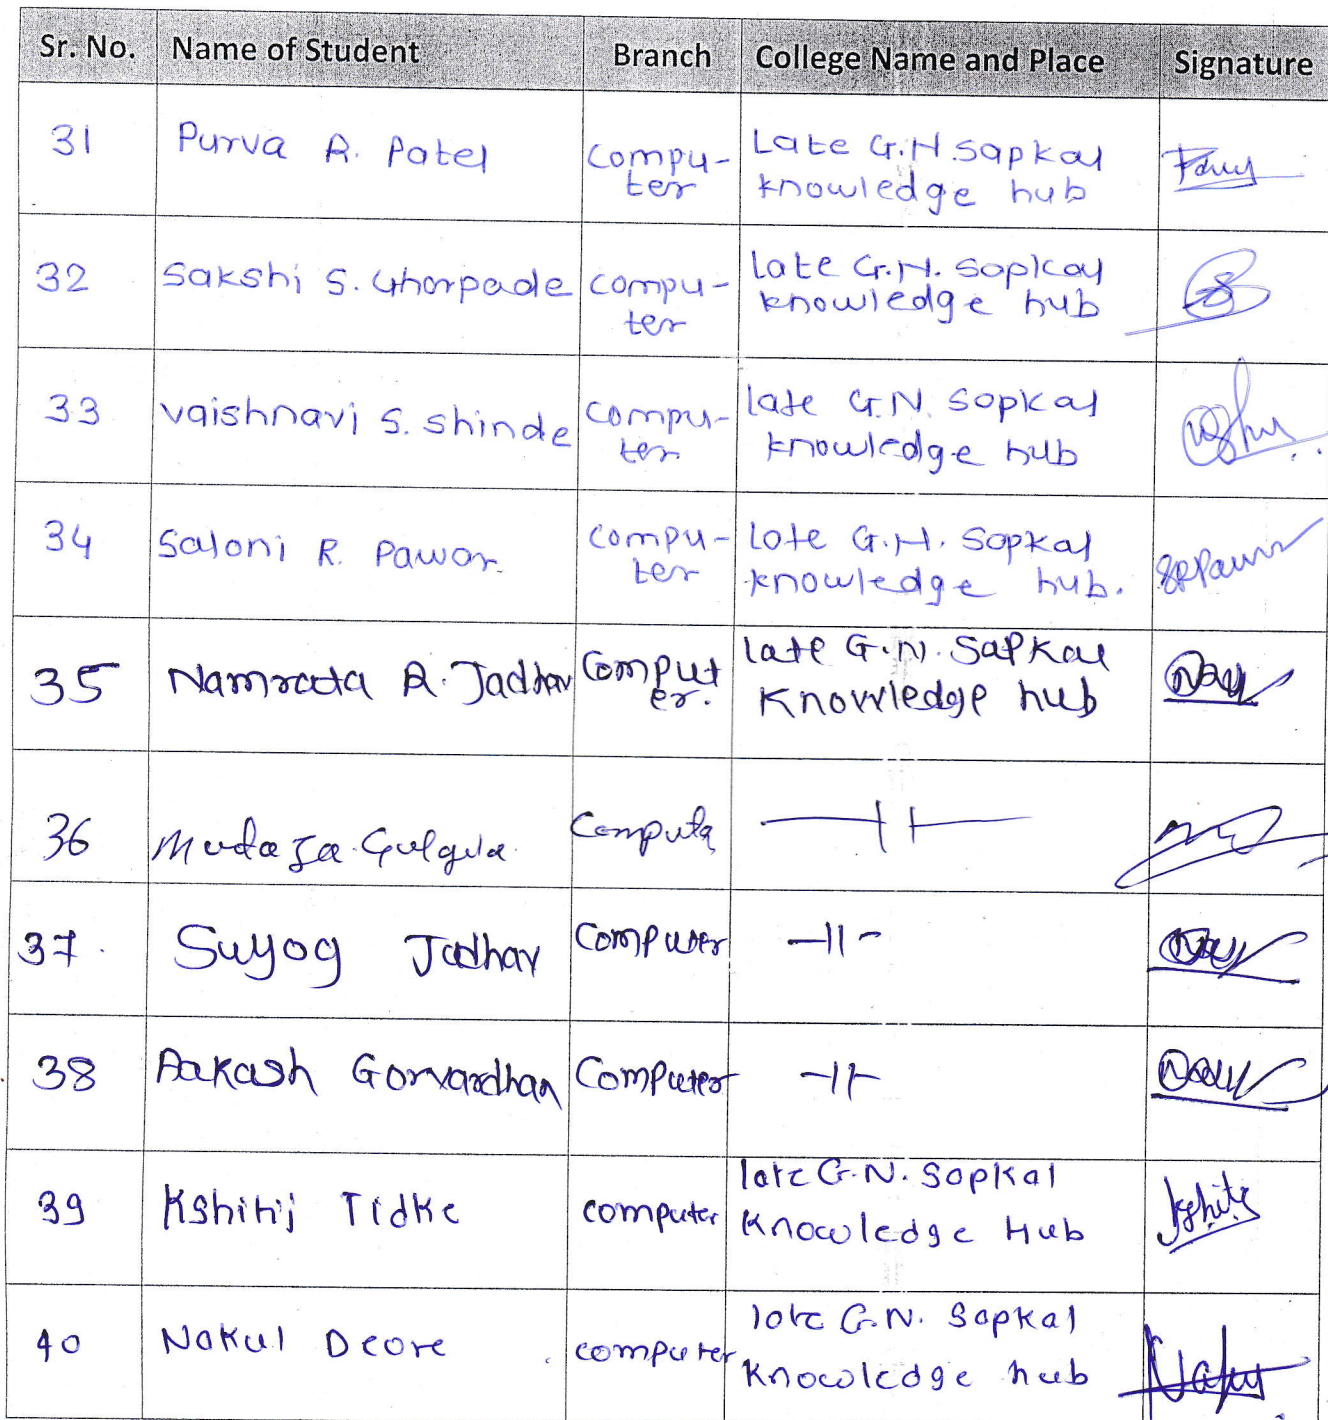 Sr. No. Name of Student Branch College Name and Place Signature
31 Purva R. Patel compu-ter Late G.H. sapkal knowledge hub
32 Sakshi S. Ghorpade compu-ter late G.H. sapkal knowledge hub
33 vaishnavi S. shinde compu-ter late G.N. sapkal knowledge hub
34 Saloni R. Pawar. compu-ter late G.H. Sapkal knowledge hub.
35 Namrata R. Jadhav Comput er. late G.N. Sapkal Knowledge hub
36 Computer —||—
37. Suyog Jadhav Computer —||—
38 Aakash Gorvardhan Computer —||—
39 Kshitij Tidke computer late G.N. Sapkal Knowledge Hub Kshitij
40 Nakul Deore computer late G.N. Sapkal Knowledge hub Nakul